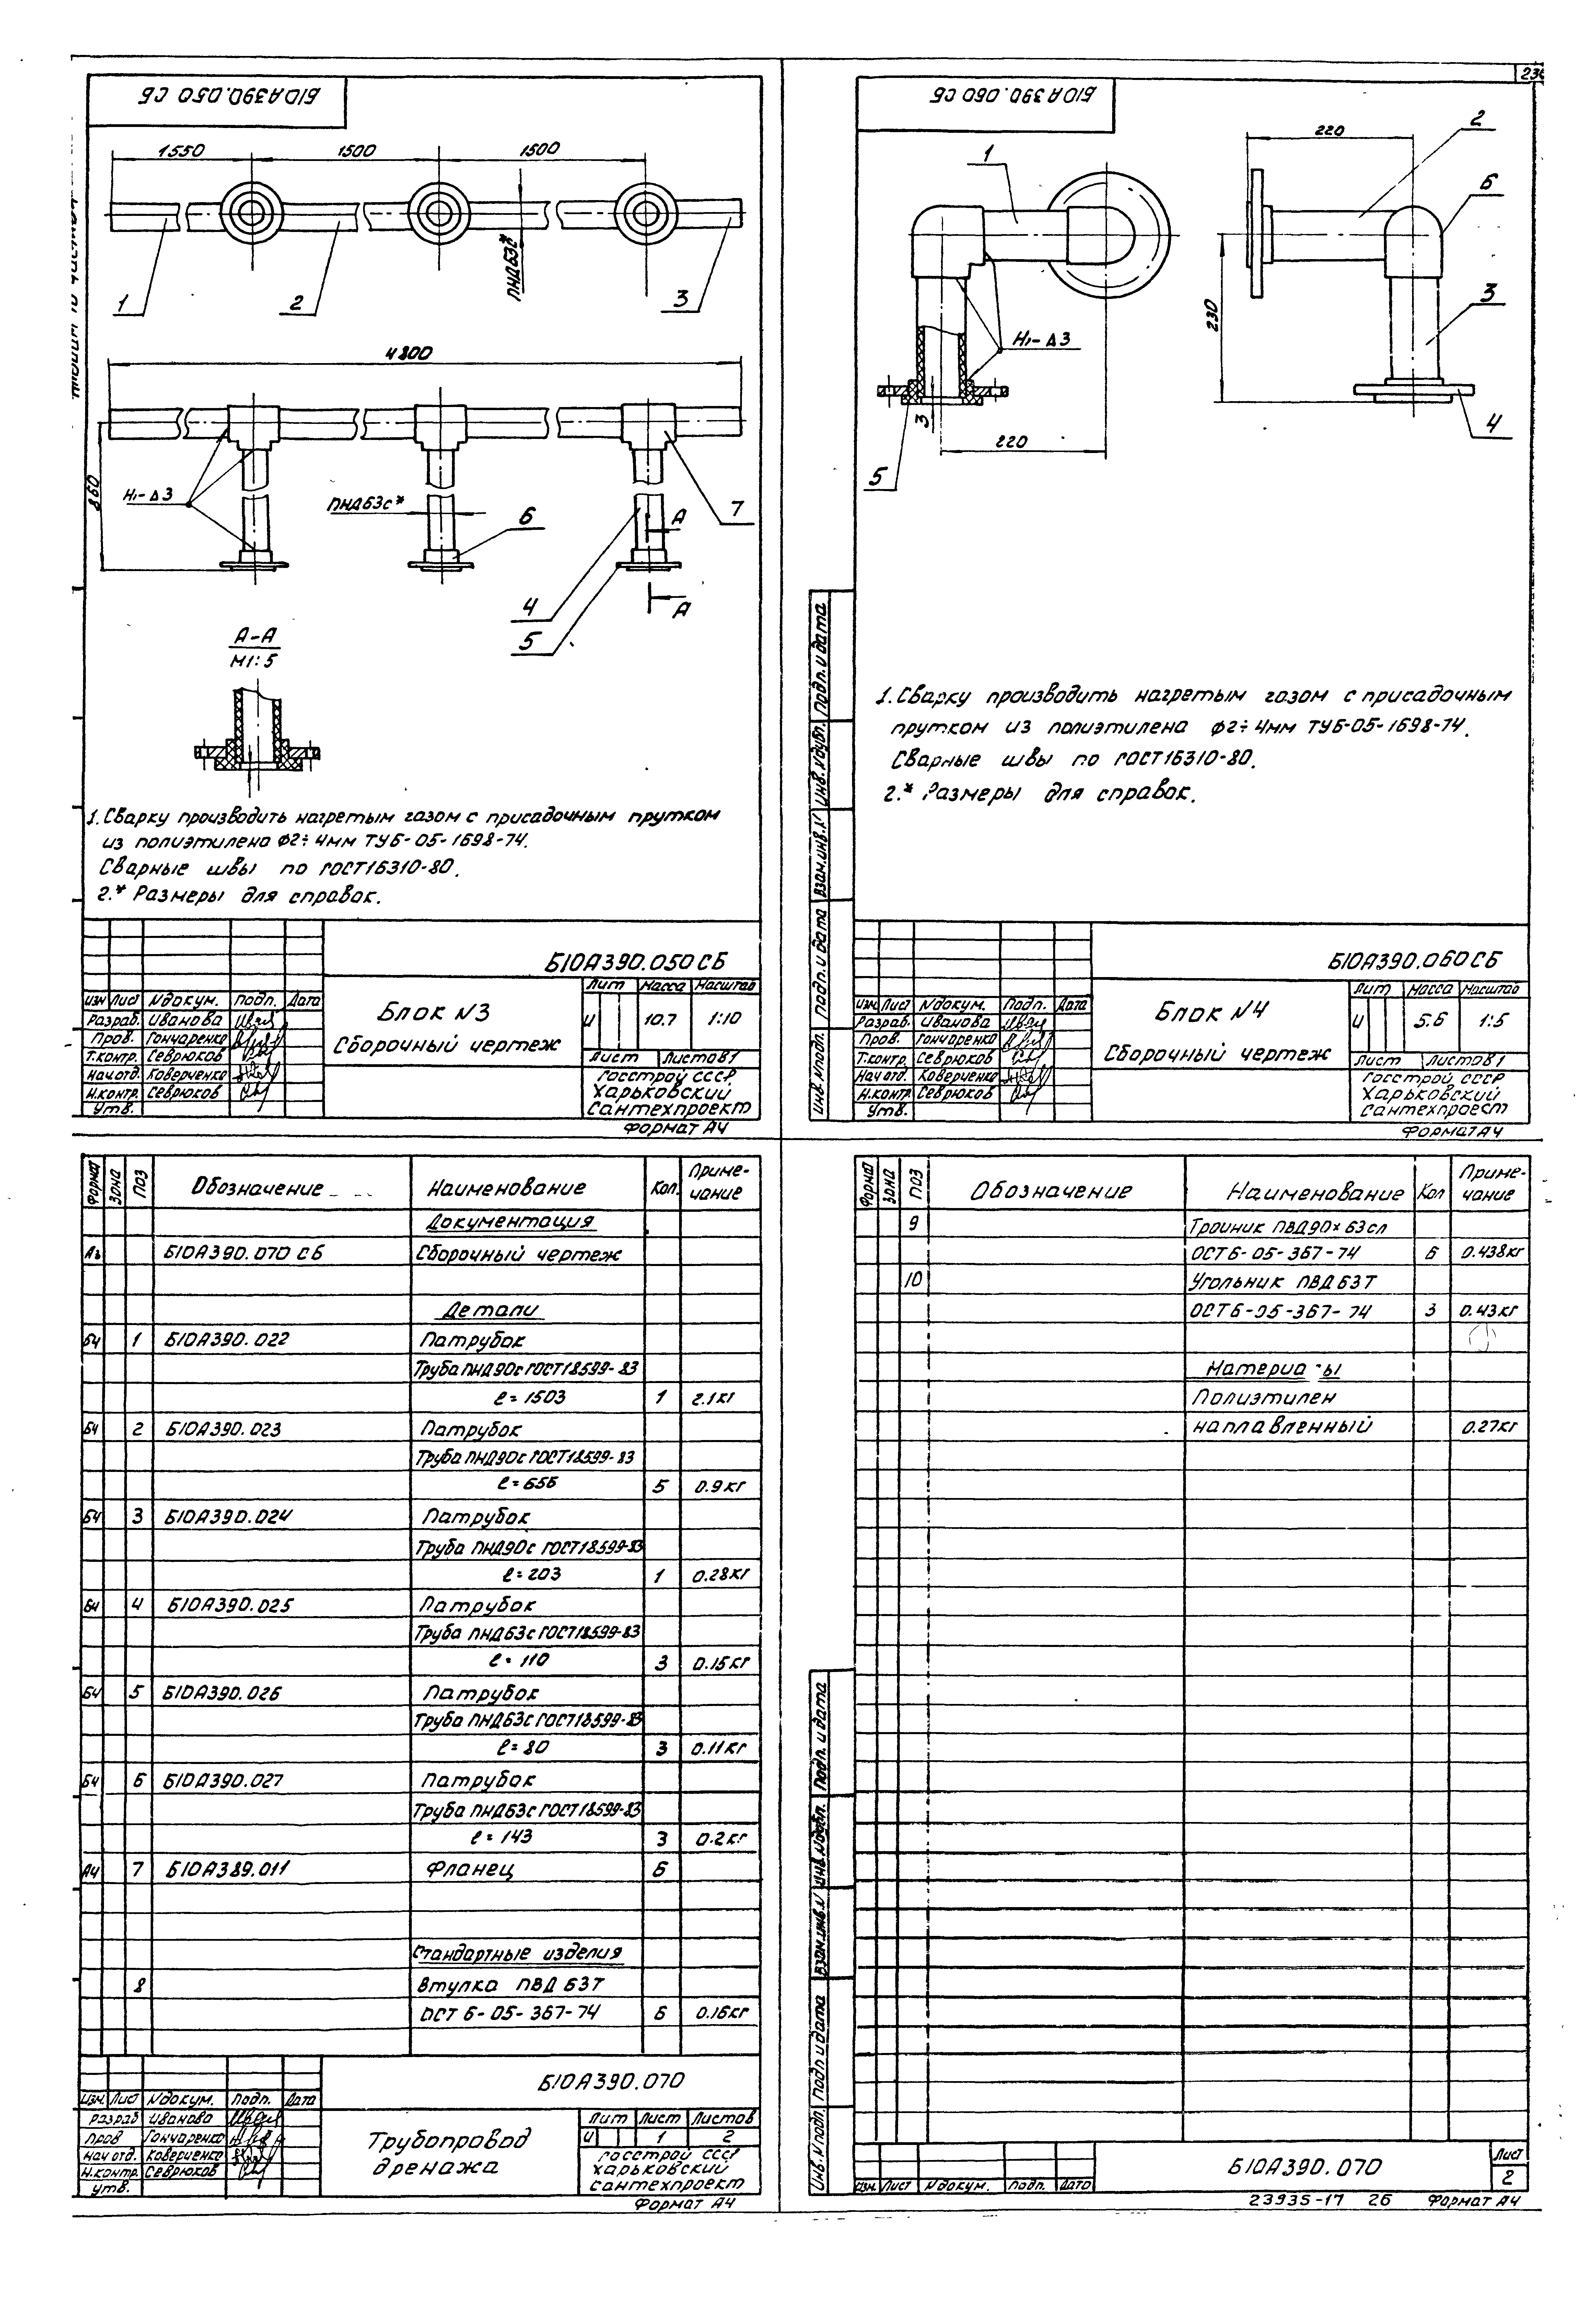 Б10А390.050 СБ
1550
1500
1500
ПНД63с*
1
2
3
4800
860
Н1-Δ3
ПНД63с*
6
7
А
4
5
А
А-А
М1:5
1. Сварку производить нагретым газом с присадочным прутком
из полиэтилена ф2÷4мм ТУ6-05-1698-74.
Сварные швы по ГОСТ16310-80.
2.* Размеры для справок.
Б10А390.050 СБ
Изм Лист №докум. Подп. Дата
Разраб. Иванова
Пров. Гончаренко
Т.контр. Севрюков
Нач отд. Коверченко
Н.контр. Севрюков
Утв.
Блок №3
Сборочный чертеж
Лит Масса Масштаб
И 10.7 1:10
Лист Листов 1
Госстрой СССР
Харьковский
Сантехпроект
Формат А4
Б10А390.060 СБ
220
2
1
6
230
3
Н1-Δ3
3
4
220
5
1. Сварку производить нагретым газом с присадочным
прутком из полиэтилена ф2÷4мм ТУ6-05-1698-74.
Сварные швы по ГОСТ16310-80.
2.* Размеры для справок.
Инв.№подл. Подп. и дата Взам.инв.№ Инв.№дубл. Подп. и дата
Б10А390.060 СБ
Изм. Лист №докум. Подп. Дата
Разраб. Иванова
Пров. Гончаренко
Т.контр. Севрюков
Нач отд. Коверченко
Н.контр. Севрюков
Утв.
Блок №4
Сборочный чертеж
Лит Масса Масштаб
И 5.6 1:5
Лист Листов 1
Госстрой СССР
Харьковский
Сантехпроект
Формат А4
Формат Зона Поз Обозначение Наименование Кол. Приме-
чание
Документация
А3 Б10А390.070 СБ Сборочный чертеж
Детали
БЧ 1 Б10А390.022 Патрубок
Труба ПНД90с ГОСТ18599-83
ℓ=1503 1 2.1кг
БЧ 2 Б10А390.023 Патрубок
Труба ПНД90с ГОСТ18599-83
ℓ=656 5 0.9кг
БЧ 3 Б10А390.024 Патрубок
Труба ПНД90с ГОСТ18599-83
ℓ=203 1 0.28кг
БЧ 4 Б10А390.025 Патрубок
Труба ПНД63с ГОСТ18599-83
ℓ=110 3 0.15кг
БЧ 5 Б10А390.026 Патрубок
Труба ПНД63с ГОСТ18599-83
ℓ=80 3 0.11кг
БЧ 6 Б10А390.027 Патрубок
Труба ПНД63с ГОСТ18599-83
ℓ=143 3 0.2кг
А4 7 Б10А389.011 Фланец 6
Стандартные изделия
8 Втулка ПВД 63Т
ОСТ 6-05-367-74 6 0.16кг
Б10А390.070
Изм. Лист №докум. Подп. Дата
Разраб Иванова
Пров Гончаренко
Нач отд. Коверченко
Н.контр. Севрюков
Утв.
Трубопровод
дренажа
Лит Лист Листов
И 1 2
Госстрой СССР
Харьковский
Сантехпроект
Формат А4
Формат Зона Поз Обозначение Наименование Кол Приме-
чание
9 Тройник ПВД90×63сл
ОСТ6-05-367-74 6 0.438кг
10 Угольник ПВД 63Т
ОСТ6-05-367-74 3 0.43кг
Полиэтилен
наплавленный 0.27кг
Инв.№подл. Подп. и дата Взам.инв.№ Инв.№дубл. Подп. и дата
Изм. Лист №докум. Подп. Дата
Б10А390.070
Лист
2
23935-17 26 Формат А4